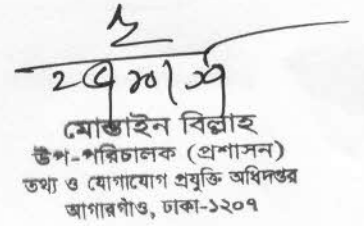 মোস্তাইন বিল্লাহ
উপ-পরিচালক (প্রশাসন)
তথ্য ও যোগাযোগ প্রযুক্তি অধিদপ্তর
আগারগাঁও, ঢাকা-১২০৭